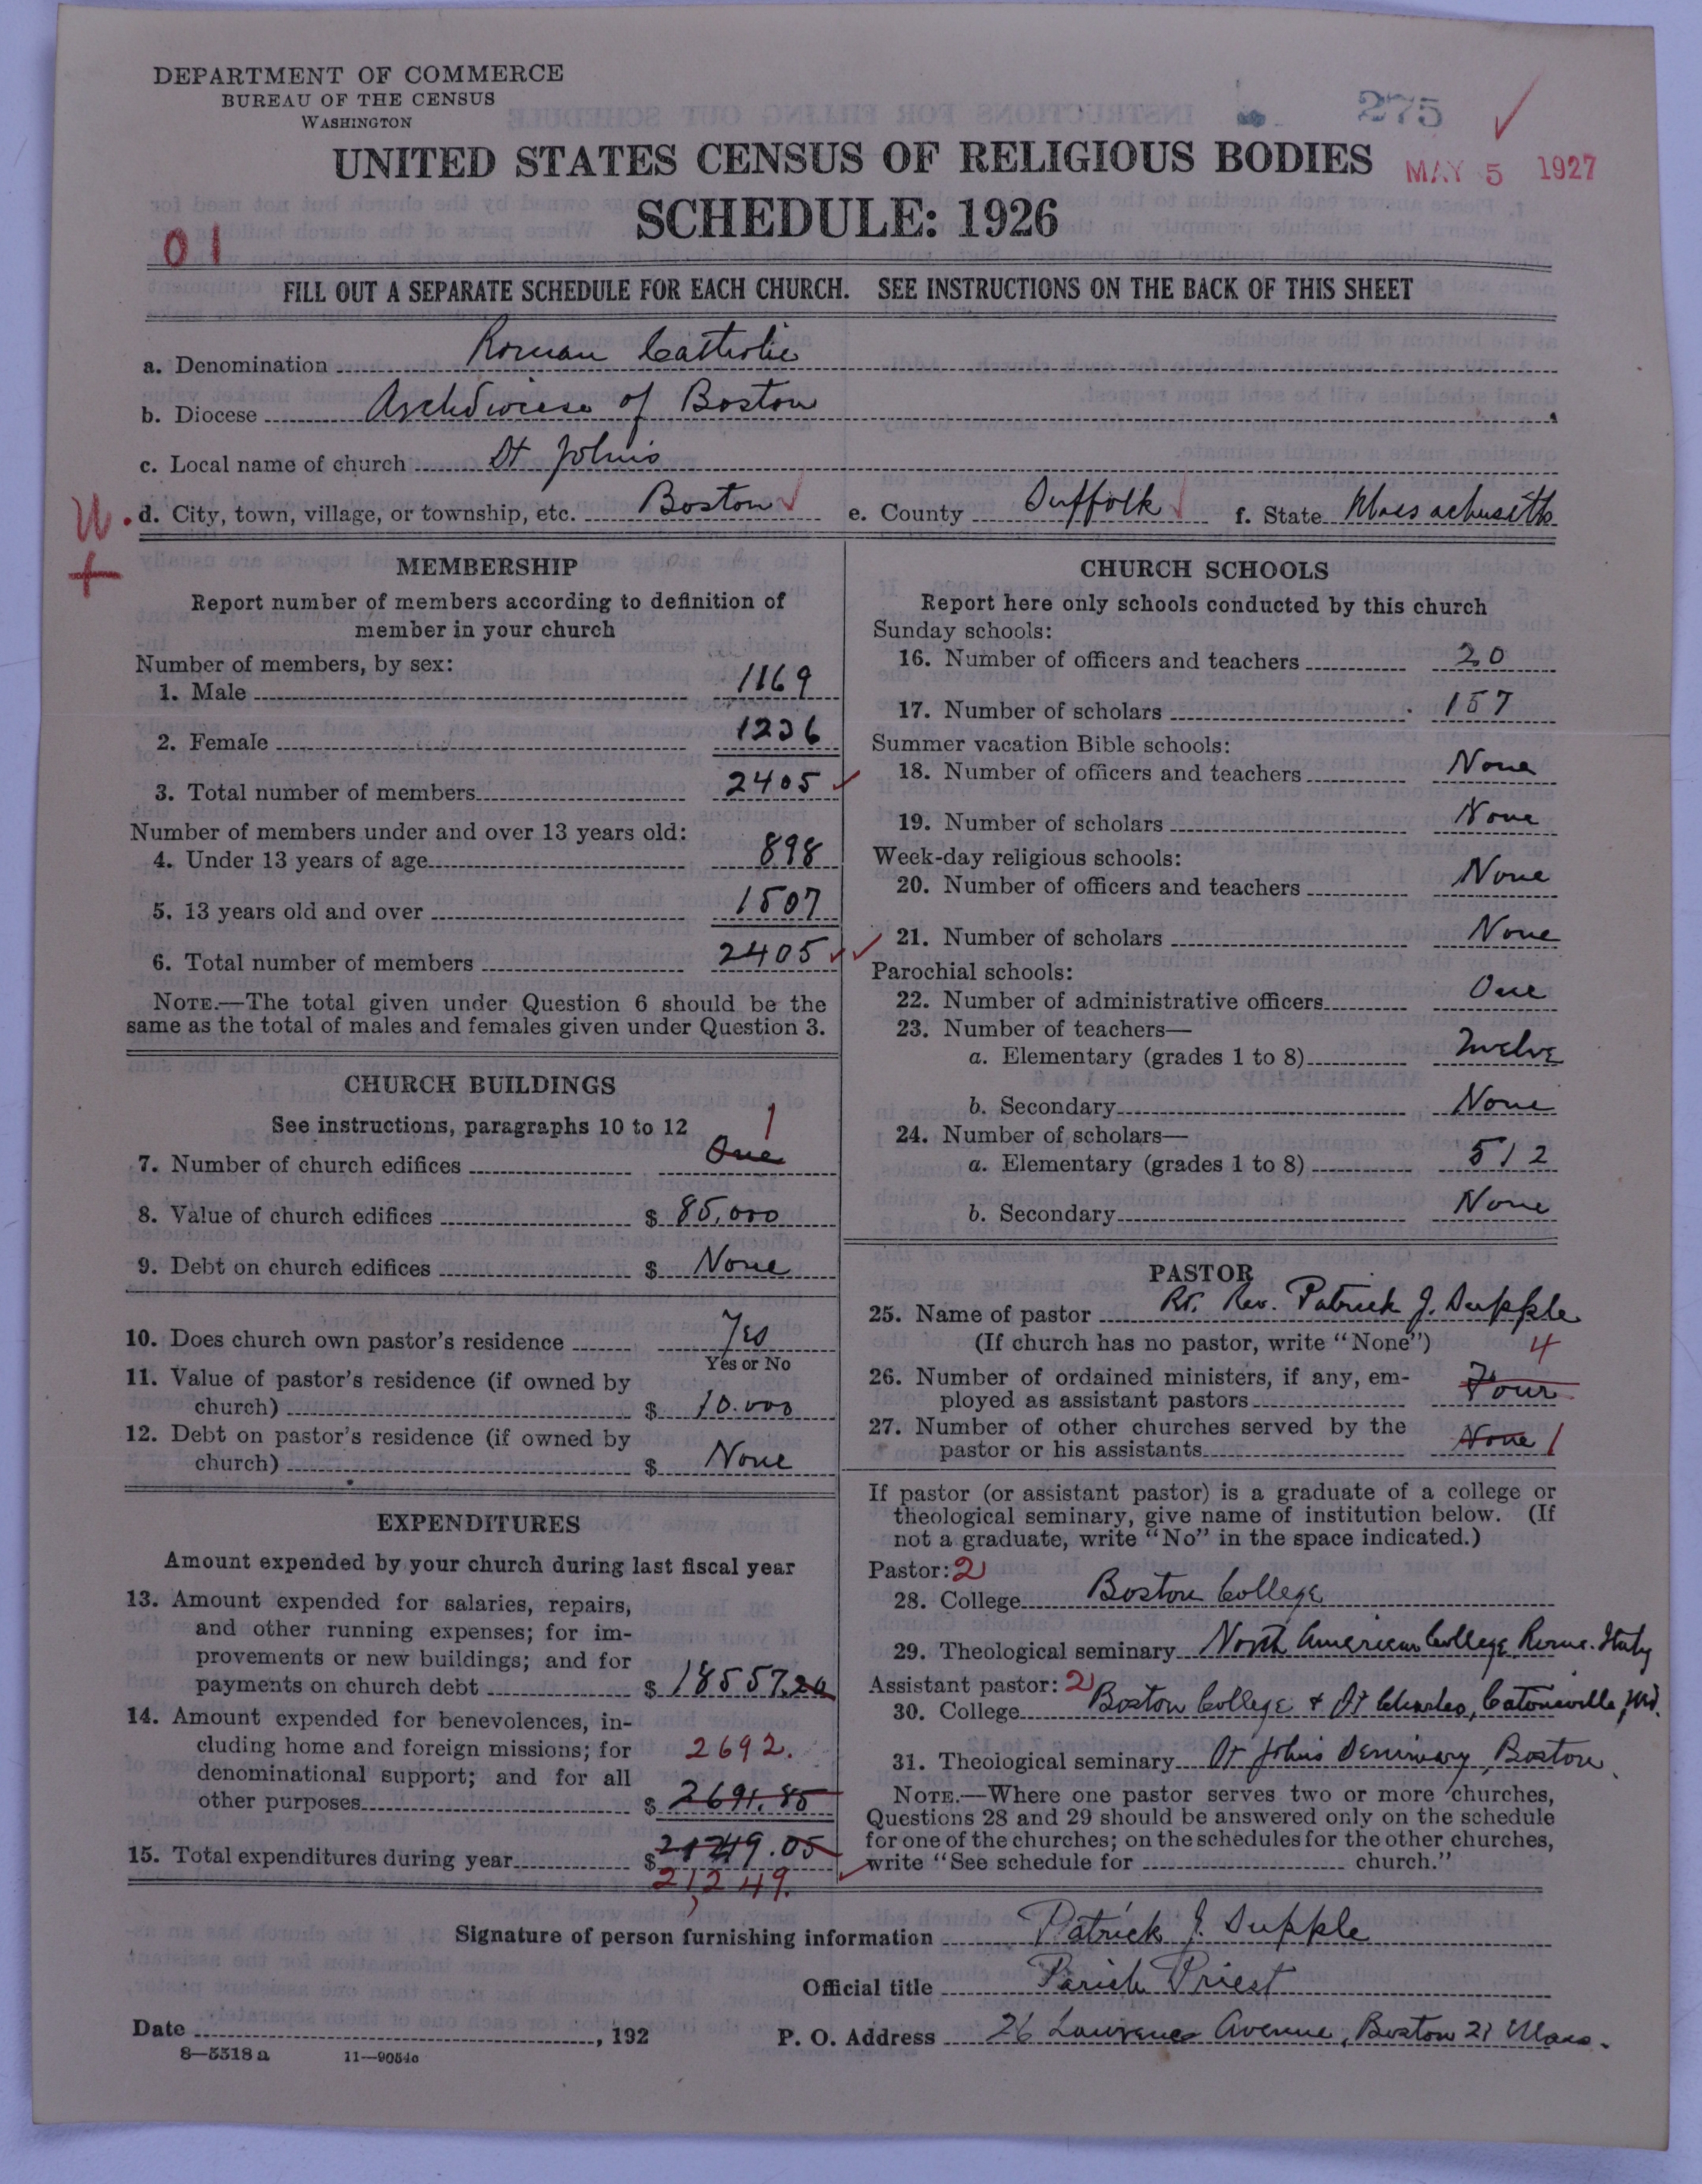 DEPARTMENT OF COMMERCE
BUREAU OF THE CENSUS
WASHINGTON
275
UNITED STATES CENSUS OF RELIGIOUS BODIES
MAY 5 1927
SCHEDULE: 1926
01
FILL OUT A SEPARATE SCHEDULE FOR EACH CHURCH. SEE INSTRUCTIONS ON THE BACK OF THIS SHEET
a. Denomination Roman Catholic
b. Diocese Archdiocese of Boston
c. Local name of church St Johns
d. City, town, village, or township, etc. Boston e. County Suffolk f. State Massachusetts
MEMBERSHIP
Report number of members according to definition of
member in your church
Number of members, by sex:
1. Male 1169
2. Female 1236
3. Total number of members 2405
Number of members under and over 13 years old:
4. Under 13 years of age 898
5. 13 years old and over 1507
6. Total number of members 2405
NOTE.—The total given under Question 6 should be the
same as the total of males and females given under Question 3.
CHURCH BUILDINGS
See instructions, paragraphs 10 to 12
1
7. Number of church edifices One
8. Value of church edifices $ 85,000
9. Debt on church edifices $ None
10. Does church own pastor's residence Yes
Yes or No
11. Value of pastor's residence (if owned by
church) $ 10.000
12. Debt on pastor's residence (if owned by
church) $ None
EXPENDITURES
Amount expended by your church during last fiscal year
13. Amount expended for salaries, repairs,
and other running expenses; for im-
provements or new buildings; and for
payments on church debt $ 18557.20
14. Amount expended for benevolences, in-
cluding home and foreign missions; for 2692.
denominational support; and for all
other purposes $ 2691.85
15. Total expenditures during year $ 21249.05
21,249.
CHURCH SCHOOLS
Report here only schools conducted by this church
Sunday schools:
16. Number of officers and teachers 20
17. Number of scholars 157
Summer vacation Bible schools:
18. Number of officers and teachers None
19. Number of scholars None
Week-day religious schools:
20. Number of officers and teachers None
21. Number of scholars None
Parochial schools:
22. Number of administrative officers One
23. Number of teachers—
a. Elementary (grades 1 to 8) Twelve
b. Secondary None
24. Number of scholars—
a. Elementary (grades 1 to 8) 512
b. Secondary None
PASTOR
25. Name of pastor Rt. Rev. Patrick J. Supple
(If church has no pastor, write "None")
4
26. Number of ordained ministers, if any, em-
ployed as assistant pastors Four
27. Number of other churches served by the
pastor or his assistants None 1
If pastor (or assistant pastor) is a graduate of a college or
theological seminary, give name of institution below. (If
not a graduate, write "No" in the space indicated.)
Pastor: 2
28. College Boston College
29. Theological seminary North American College, Rome. Italy
Assistant pastor: 2
30. College Boston College & St Charles, Catonsville, Md.
31. Theological seminary St Johns Seminary, Boston
NOTE.—Where one pastor serves two or more churches,
Questions 28 and 29 should be answered only on the schedule
for one of the churches; on the schedules for the other churches,
write "See schedule for church."
Signature of person furnishing information Patrick J. Supple
Official title Parish Priest
Date , 192
P. O. Address 26 Lawrence Avenue, Boston 21 Mass.
8—5518 a 11—9054c